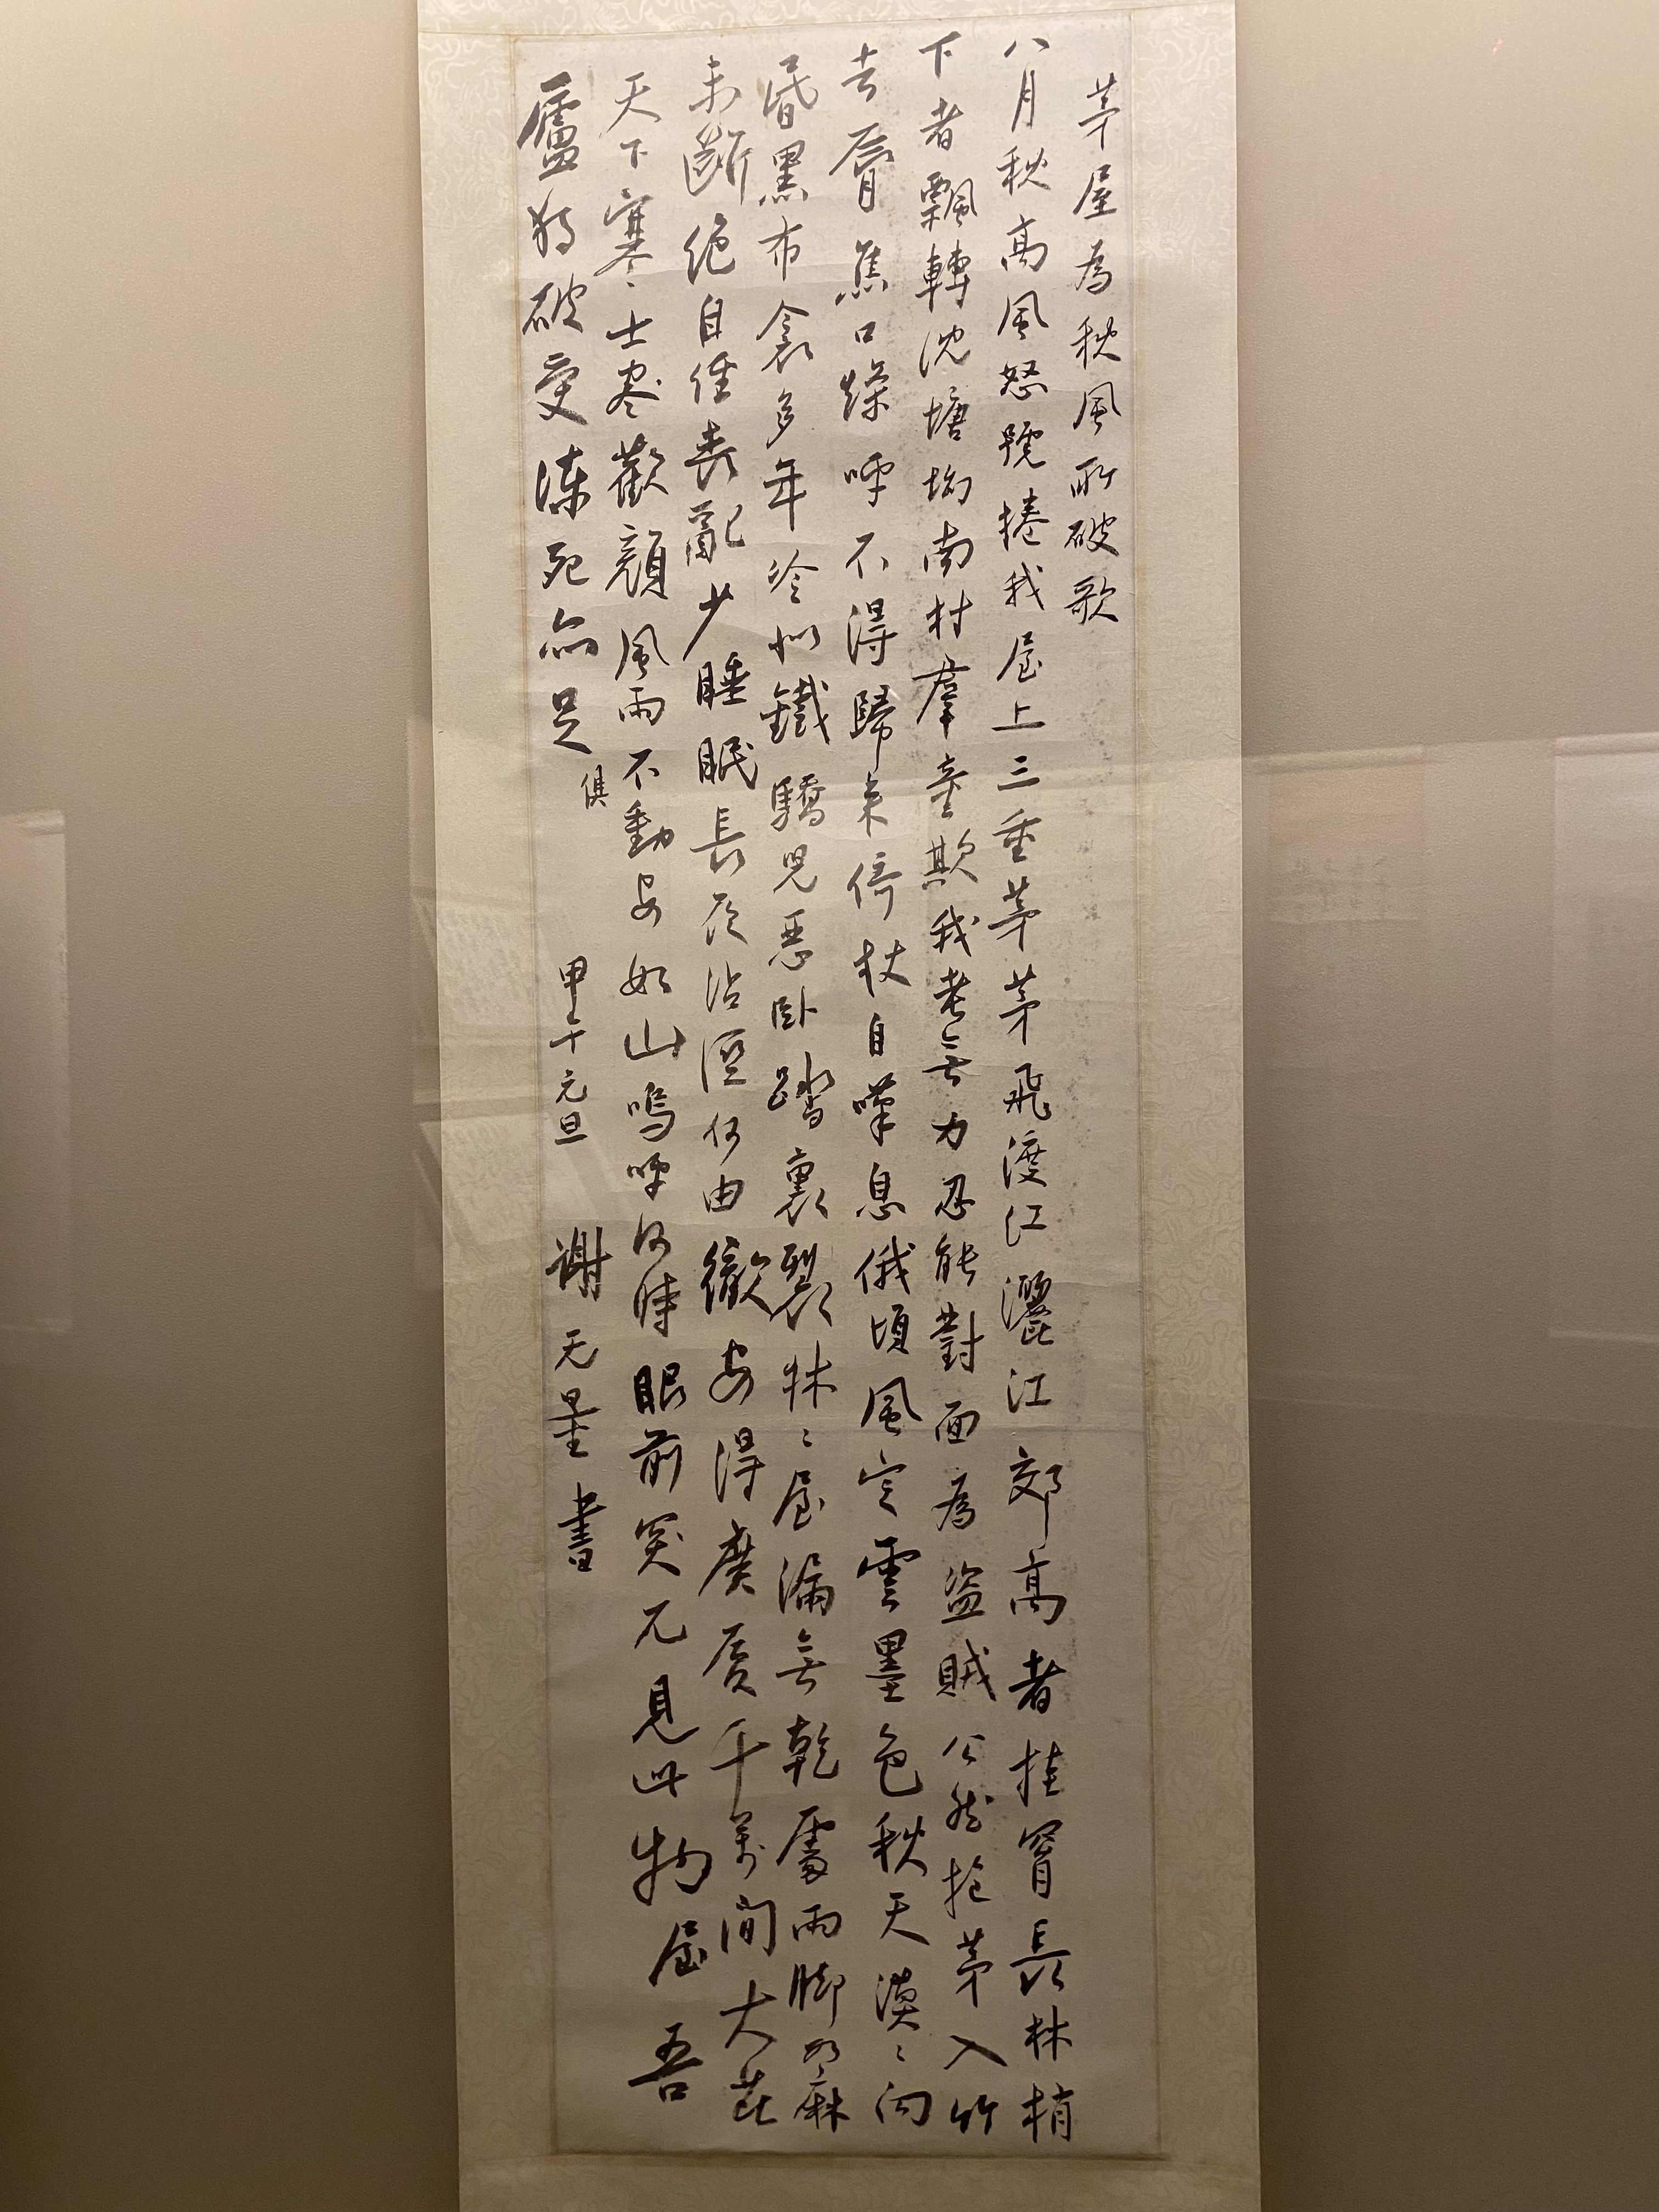 茅屋為秋風所破歌
八月秋高風怒號捲我屋上三重茅茅飛渡江灑江郊高者挂罥長林梢
下者飄轉沈塘坳南村羣童欺我老無力忍能對面為盜賊公然抱茅入竹
去脣焦口燥呼不得歸來倚杖自嘆息俄頃風定雲墨色秋天漠〻向
昏黑布衾多年冷似鐵驕兒惡臥踏裏裂牀〻屋漏無乾處雨腳如麻
未斷絕自經喪亂少睡眠長夜沾溼何由徹安得廣廈千萬間大庇
天下寒〻士盡歡顏風雨不動安如山嗚呼何時眼前突兀見此物屋吾
廬獨破受凍死亦足
俱
甲午元旦 谢无量書